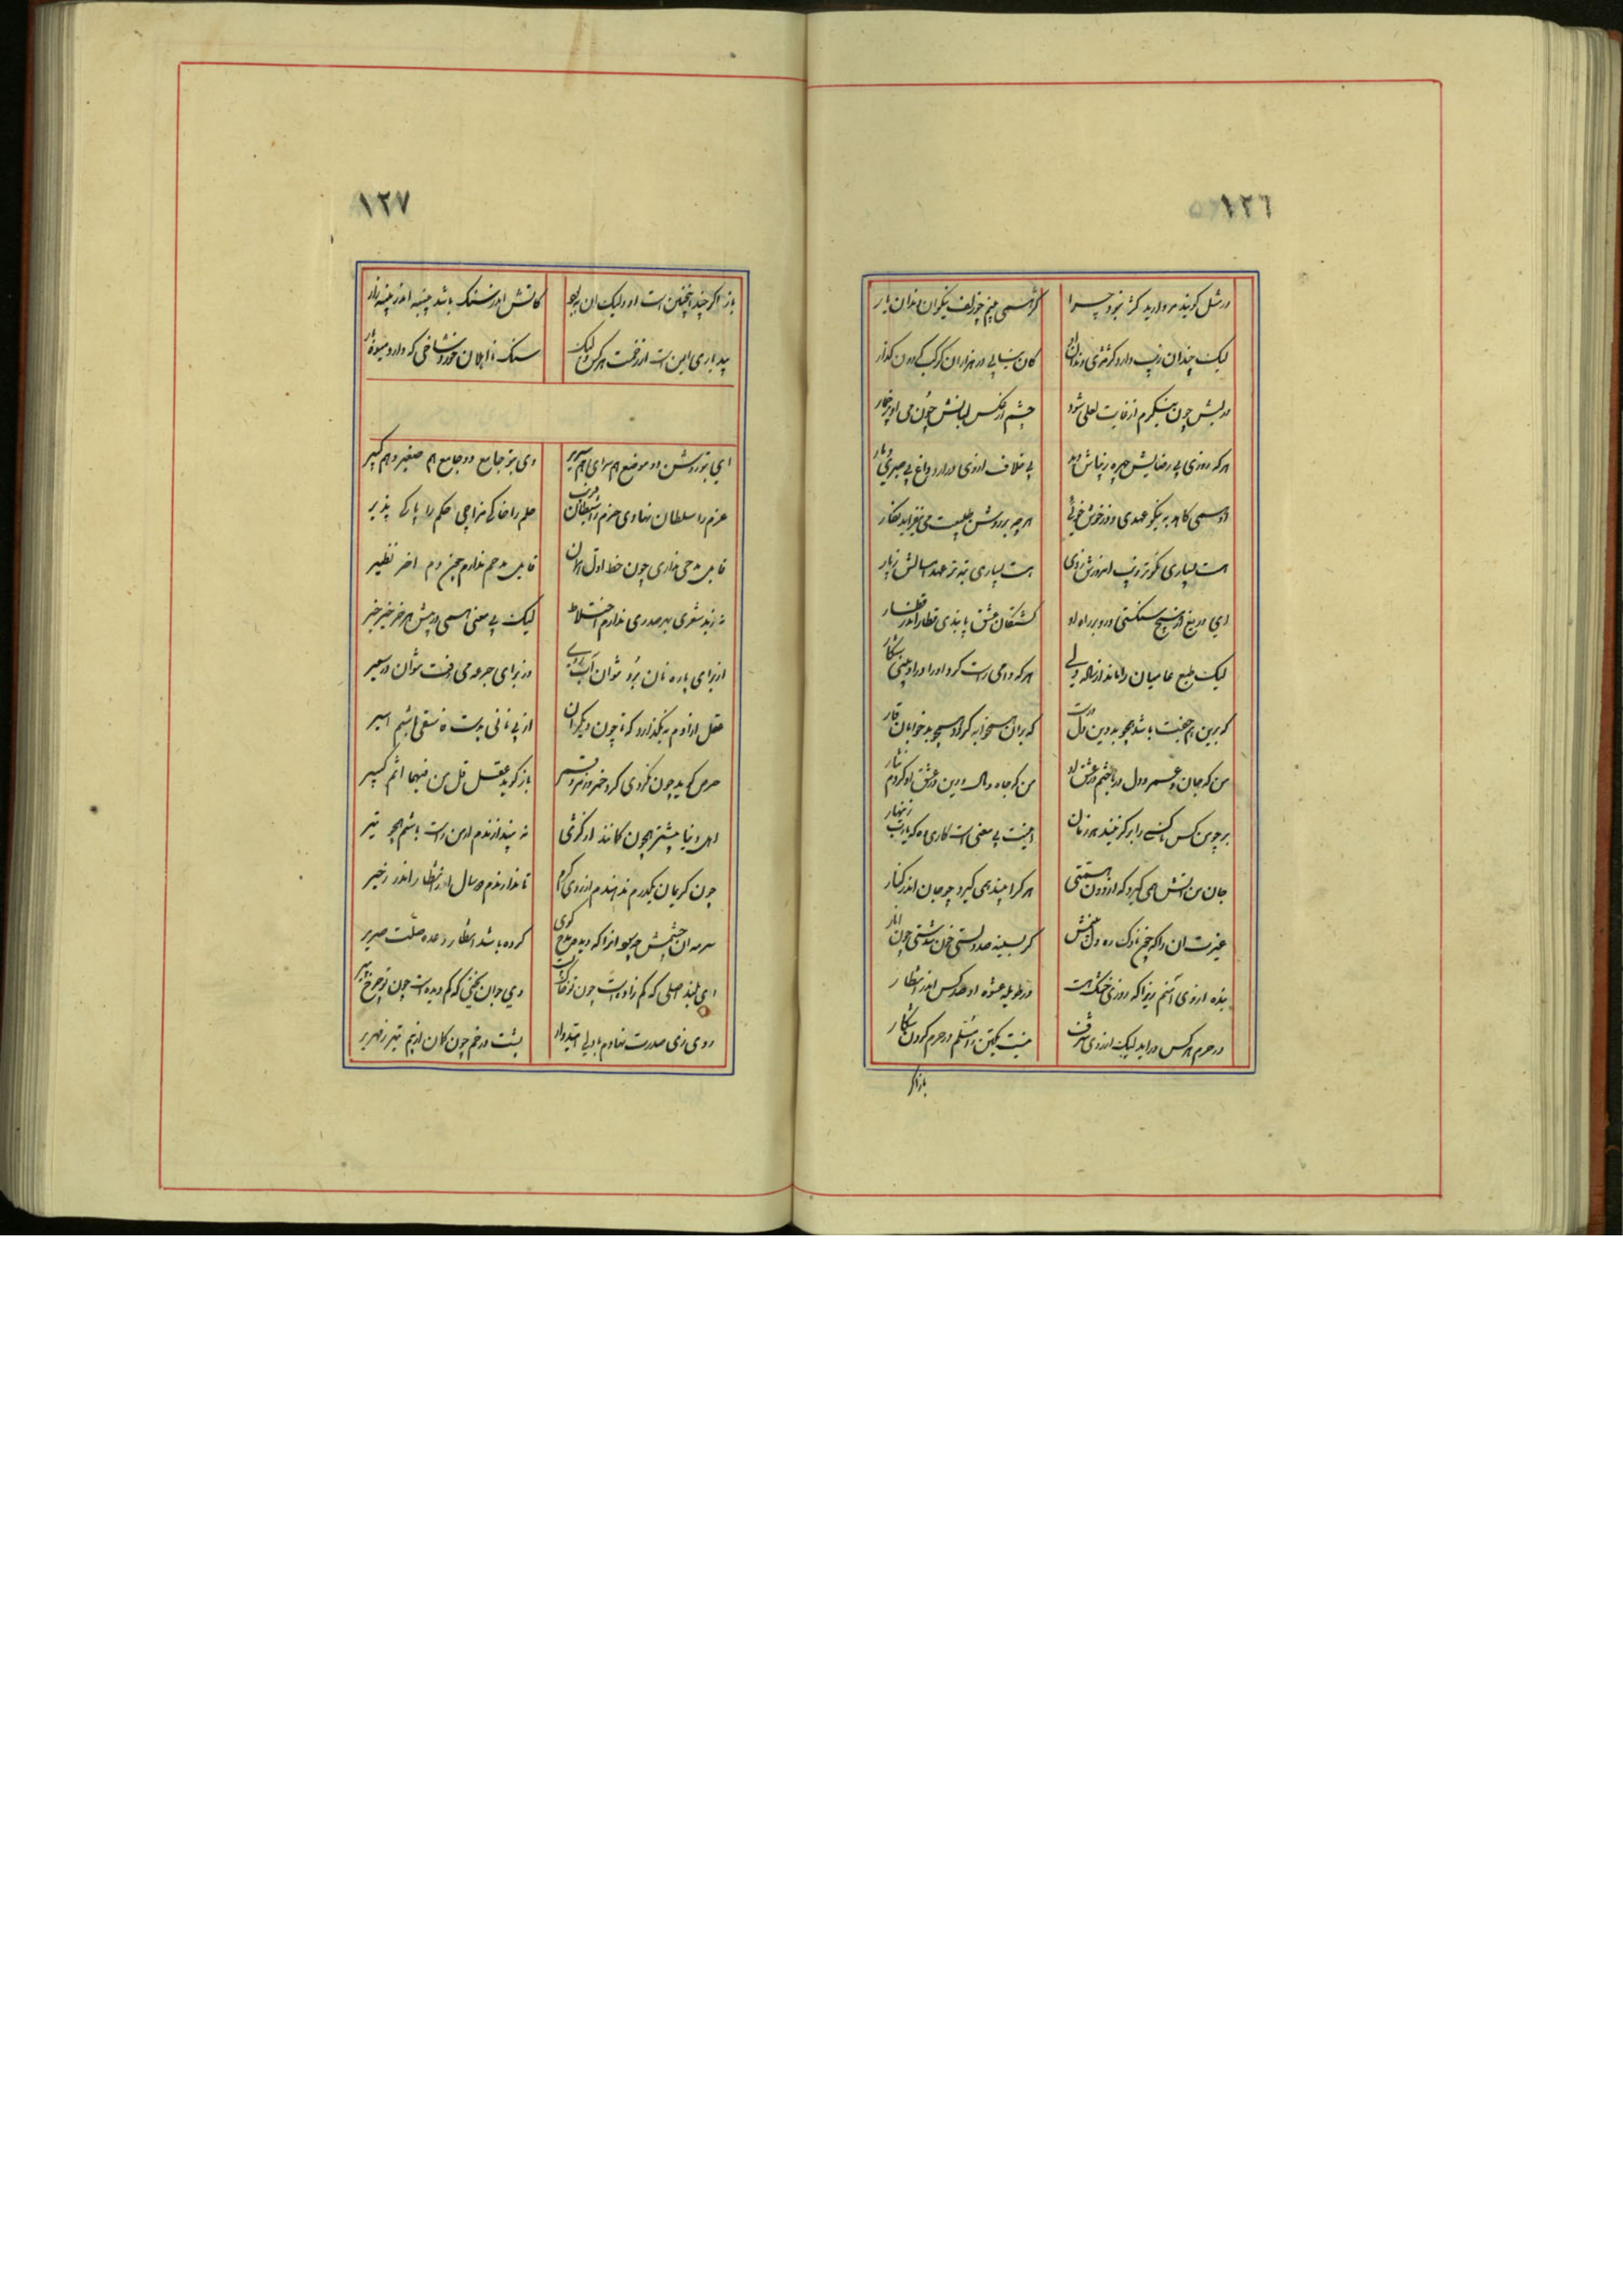 ١٢٦
در مثل گویند مروارید کژ نبود چرا
کژ همی بینم چو زلف نیکوان دندان یار
لیک چندان زیب دارد کژ مژی دندان او
کان نیابی در هزاران کوکب گردون گذار
در لبش چون بنگرم از غایت لعلی شود
چشم از عکس لبانش چون می او پر خمار
هر که روزی بی رضایش چهره زیباش دید
بی خلاف از وی دارد داغ بی صبری
او همی کاهد به نیکو عهدی و در خوش خویی
هر چه بر رویش طبیعت می فزاید نگار
هست بسیاری نکوتر روی امروزش ز دی
هست بسیاری تبه تر عهد امسالش ز پار
ای دریغ ار هیچ سنگستی درو بر راه او
کشتگان عشق یابندی قطار اندر قطار
لیک طبع عامیان را ماند از ناله ولی
هر که دامی راست کرد او را درو بینی شکار
که برین هم جفت باشد همچو بد دین
که بر آن همخوابه گردد همچو بدخوابان
من که جان و عمر و دل در باختم در عشق او
من که جاه و مال و دین در عشق او کردم نثار
بر چو من کس ناکسی را بر گزیند هر زمان
اینت بی معنی است کاری گه یارب زنهار
جان من آتش همی گیرد که از دون همتی
هر کرا بیند همی گیرد چو جان اندر کنار
غیرت آن را که چخ ناوک زد دل منش
گر بسینه صد دلستی خون شدستی چون انار
بنده از وی آنم زیرا که روزی خنگ هست
در طویله عشوه او صد کس اندر انتظار
در حرم هر کس در آید لیک از روی شرف
نیست یک تن را مسلم در حرم کردن شکار
باز اگر
١٢٧
باز اگر چند اینچنین است او ولیک آن به که او
کاتش اندر سنگ باشد پنبه اندر پنبه زار
بید باری ایمن است از زخمت هر کس ولیک
سنگ نااهلان خورد شاخی که دارد میوه دار
ای بتو روشن دو موضع هم سرای هم سریر
وی بتو جامع دو جامع هم صغیر و هم کبیر
عزم را سلطان نهادی حزم را شیطان فریب
حلم را خاکی مزاجی حکم را پاکی پذیر
قابل مدحی نداری چون خط اول
قابل مدحم ندارم چون دم آخر نظیر
نه بزند شعری بهر صدری ندارم اختلاط
لیک بی معنی همی در پیش هر خر خیر خیر
از برای پاره نان برد نتوان آب روی
وز برای جرعه می رفت نتوان در سعیر
عقل آزادم بنگذارد که تا چون دیگران
از پی نانی بدست فاسقی باشم اسیر
حرص گوید چون نکردی کرد خمر و زمر و قمر
باز گوید عقل قل من فیهما اثم کبیر
اهل دنیا بیشتر همچون کمانند از کژی
نه بیندازندم ار من راست باشم همچو تیر
چون کریمان یکدرم ندهندم از روی کرم
تا ندارندم دو سال از انتظار اندر زحیر
سرمه آن چشمش چه سود آنرا که دیده مدح گوی
کرده باشد انتظار وعده صلت ضریر
ای بلند اصلی که کم زادست چون تو کائنات
وی جوان بختی که کم دیده است چون تو چرخ پیر
روی زی صدرت نهادم با دلی امیدوار
پشت در خم چون کمان از بیم تیر زمهریر